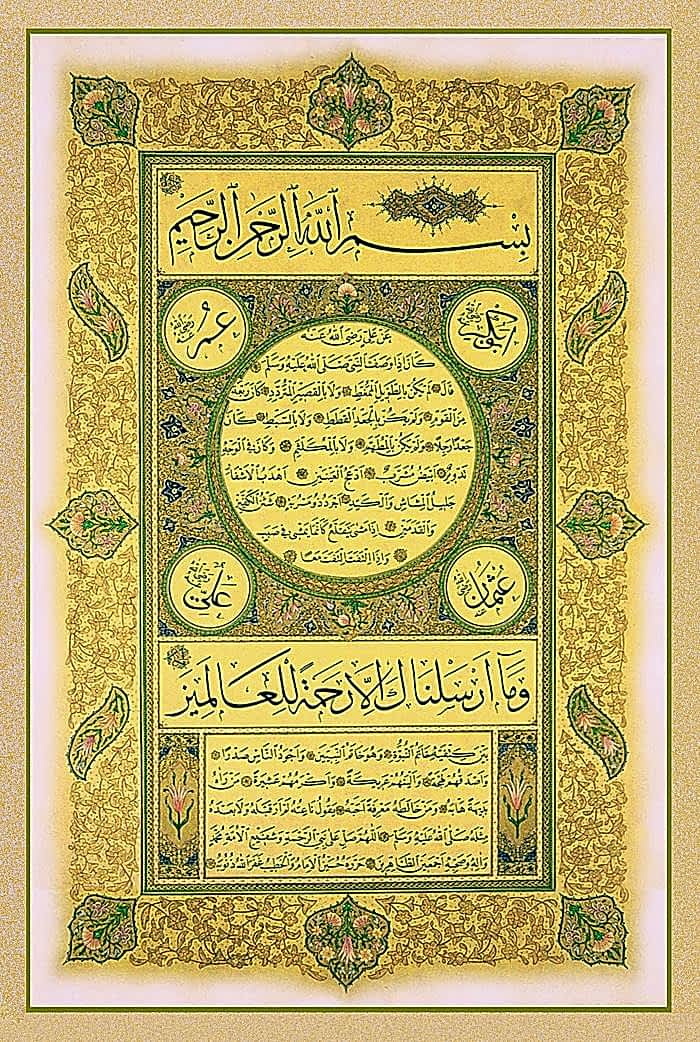 بِسْمِ اللهِ الرَّحْمٰنِ الرَّحِيمِ
ابو بكر رضي الله عنه
عمر رضي الله عنه
عن علي رضي الله عنه
كان اذا وصف النبي صلى الله عليه وسلم
قال لم يكن بالطويل الممغط ولا بالقصير المتردد وكان ربعة
من القوم ولم يكن بالجعد القطط ولا بالسبط كان
جعدا رجلا ولم يكن بالمطهم ولا بالمكلثم وكان في الوجه
تدوير ابيض مشرب ادعج العينين اهدب الاشفار
جليل المشاش والكتد اجرد ذو مسربة شثن الكفين
والقدمين اذا مشى يتقلع كانما يمشي في صبب
واذا التفت التفت معا
عثمان رضي الله عنه
علي رضي الله عنه
وَمَا أَرْسَلْنَاكَ إِلَّا رَحْمَةً لِلْعَالَمِينَ
بين كتفيه خاتم النبوة وهو خاتم النبيين واجود الناس صدرا
واصدقهم لهجة والينهم عريكة واكرمهم عشيرة من رآه
بديهة هابه ومن خالطه معرفة احبه يقول ناعته لم ار قبله ولا بعده
مثله صلى الله عليه وسلم اللهم صل على نبي الرحمة وشفيع الامة محمد
وآله وصحبه اجمعين الطاهرين حرره حسين الخطيب غفر الله ذنوبه